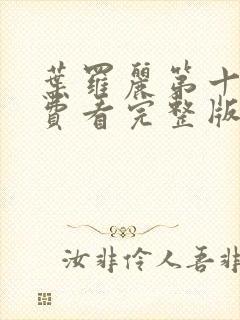 葉羅麗第十
費看完整版
汝非伶人吾非